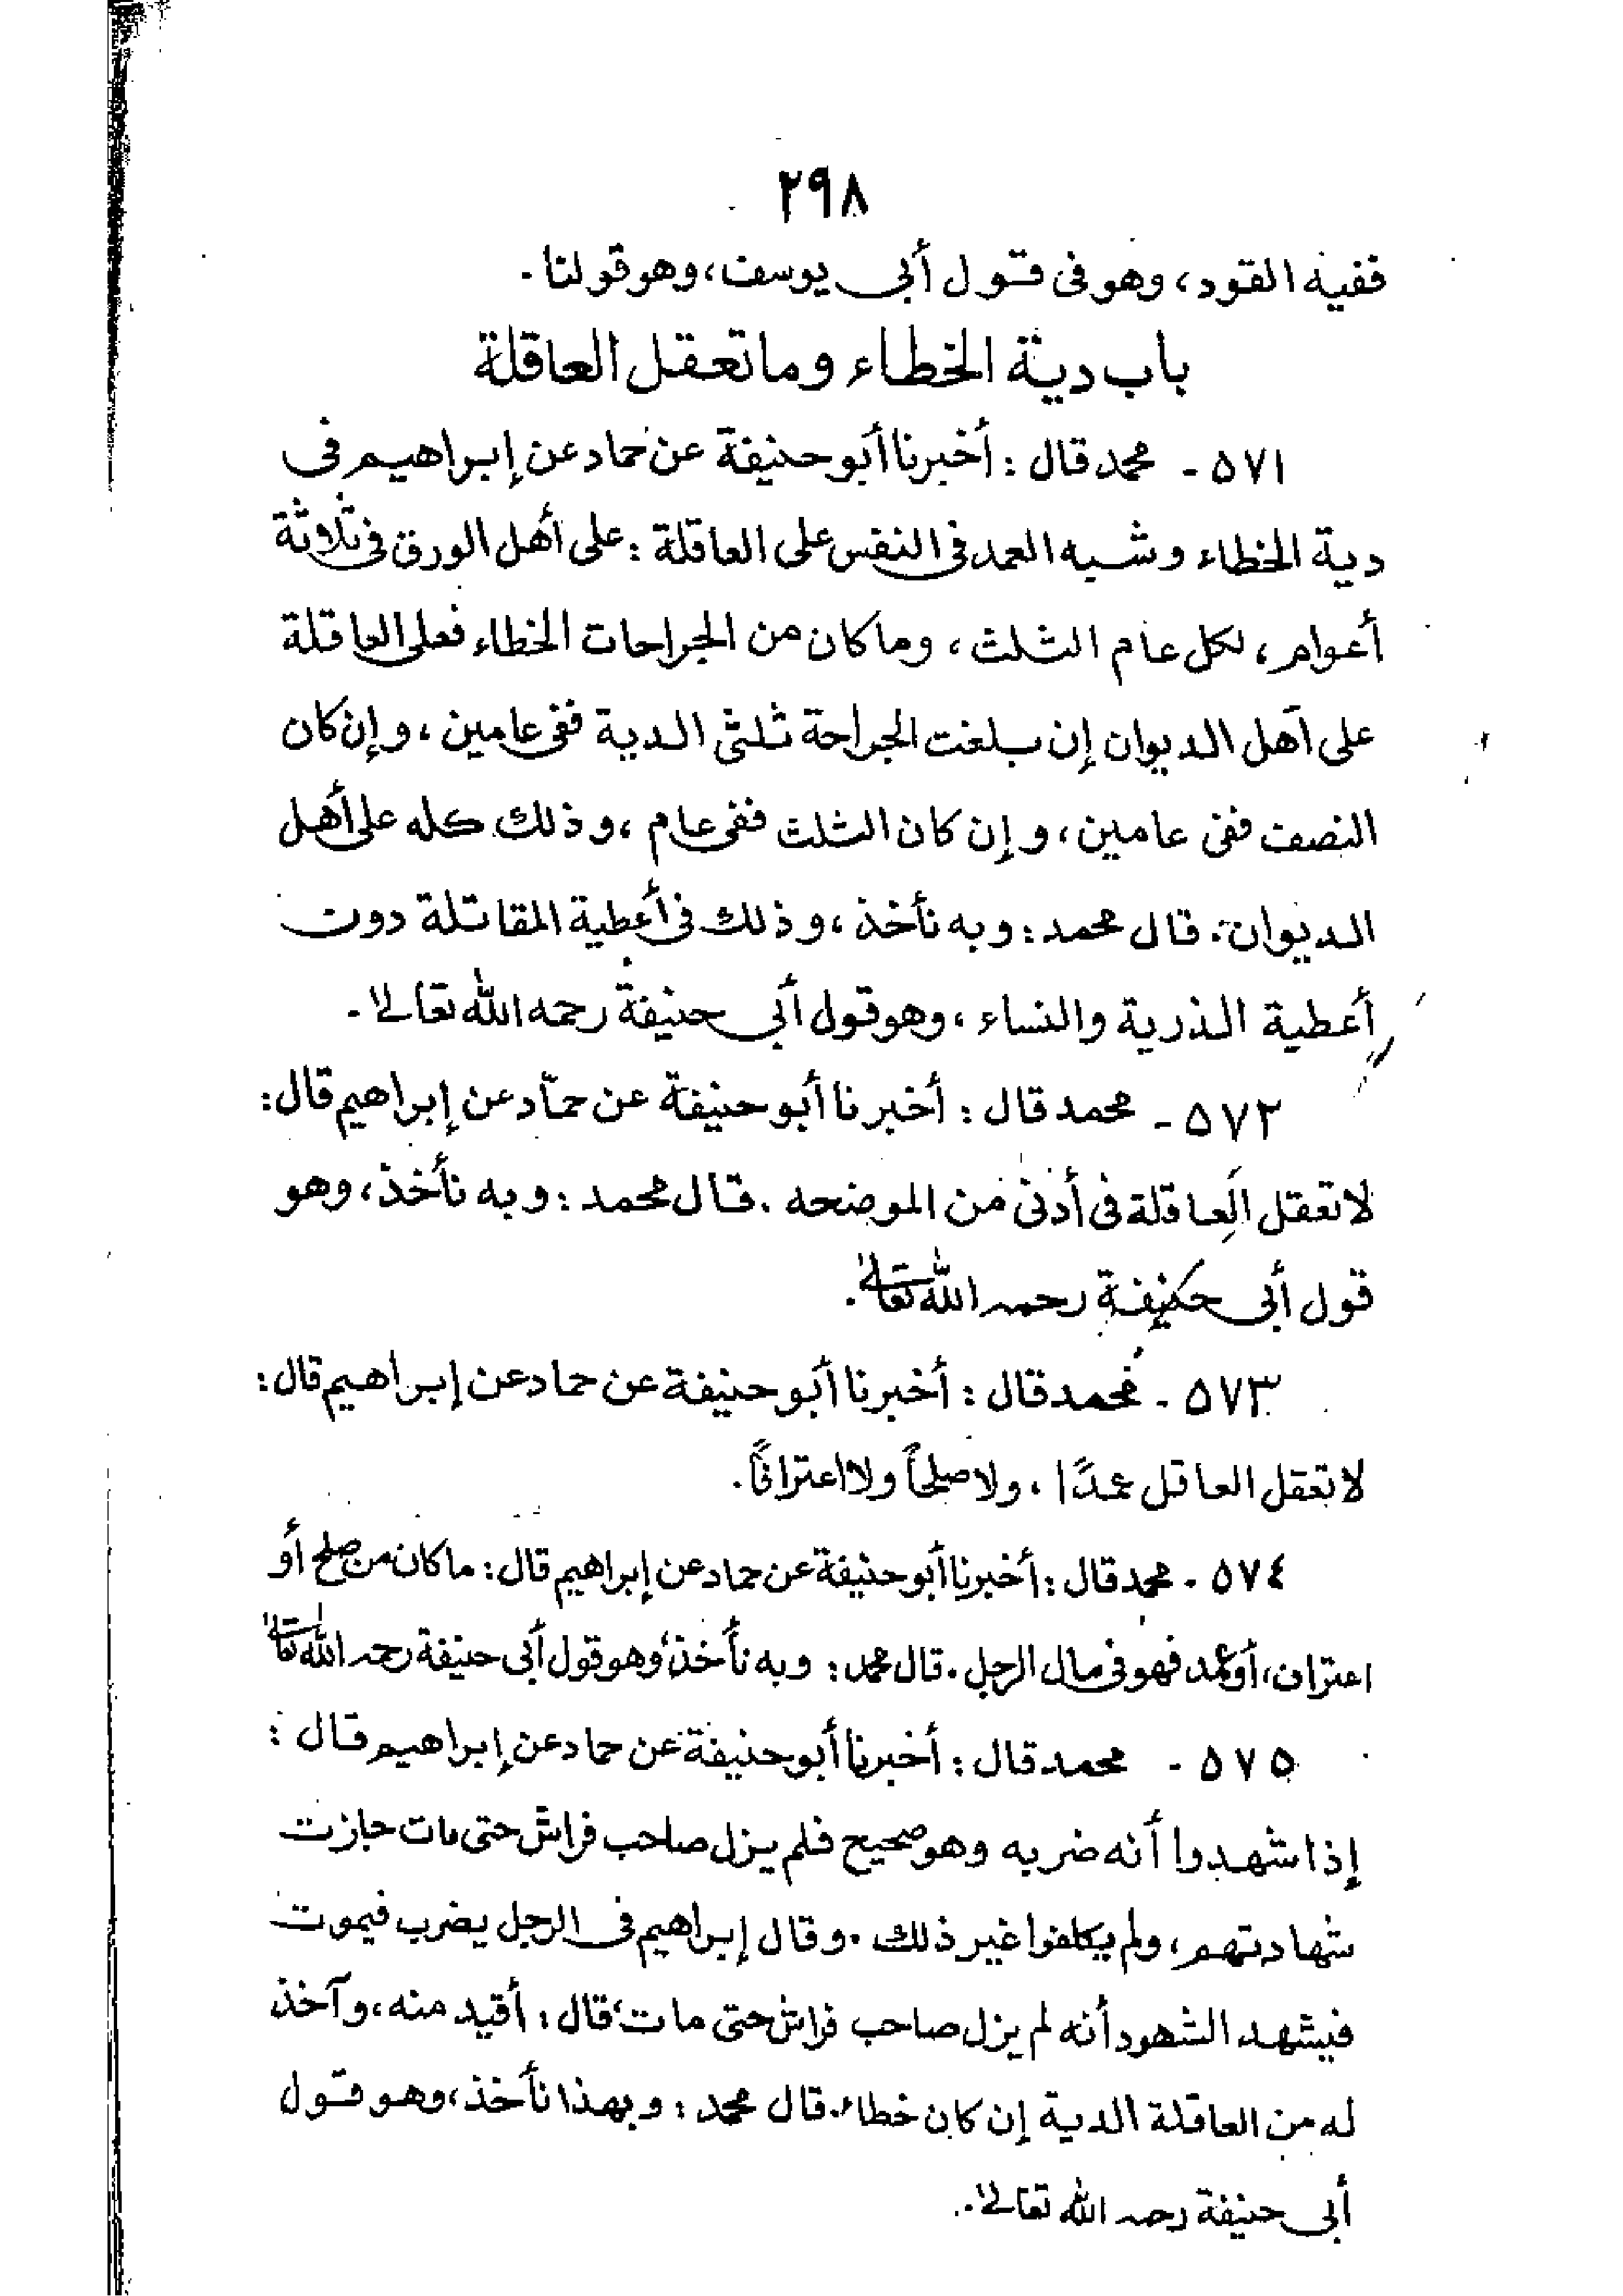 ٢٩٨
ففيه القود، وهو فى قول أبى يوسف، وهو قولنا.
باب دية الخطاء وما تعقل العاقلة
٥٧١ - محمد قال: أخبرنا أبو حنيفة عن حماد عن إبراهيم فى
دية الخطاء وشبه العمد فى النفس على العاقلة: على أهل الورق فى ثلاثة
أعوام، لكل عام الثلث، وما كان من الجراحات الخطاء فعلى العاقلة
على أهل الديوان إن بلغت الجراحة ثلثى الدية ففى عامين، وإن كان
النصف ففى عامين، وإن كان الثلث ففى عام، وذلك كله على أهل
الديوان. قال محمد: وبه نأخذ، وذلك فى أعطية المقاتلة دون
أعطية الذرية والنساء، وهو قول أبى حنيفة رحمه الله تعالى.
٥٧٢ - محمد قال: أخبرنا أبو حنيفة عن حمّاد عن إبراهيم قال:
لا تعقل العاقلة فى أدنى من الموضحه. قال محمد: وبه نأخذ، وهو
قول أبى حنيفة رحمه الله تعالى.
٥٧٣ - محمد قال: أخبرنا أبو حنيفة عن حماد عن إبراهيم قال:
لا تعقل العاقل عمدًا، ولا صلحاً ولا اعترافاً.
٥٧٤ - محمد قال: أخبرنا أبو حنيفة عن حماد عن إبراهيم قال: ما كان من صلح أو
اعتراف، أو عمد فهو فى مال الرجل. قال محمد: وبه نأخذ، وهو قول أبى حنيفة رحمه الله تعالى
٥٧٥ - محمد قال: أخبرنا أبو حنيفة عن حماد عن إبراهيم قال:
إذا شهدوا أنه ضربه وهو صحيح فلم يزل صاحب فراش حتى مات جازت
شهادتهم، ولم يكلفوا غير ذلك. وقال إبراهيم فى الرجل يضرب فيموت
فيشهد الشهود أنه لم يزل صاحب فراش حتى مات، قال: أقيد منه، وآخذ
له من العاقلة الدية إن كان خطاء. قال محمد: وبهذا نأخذ، وهو قول
أبى حنيفة رحمه الله تعالى.